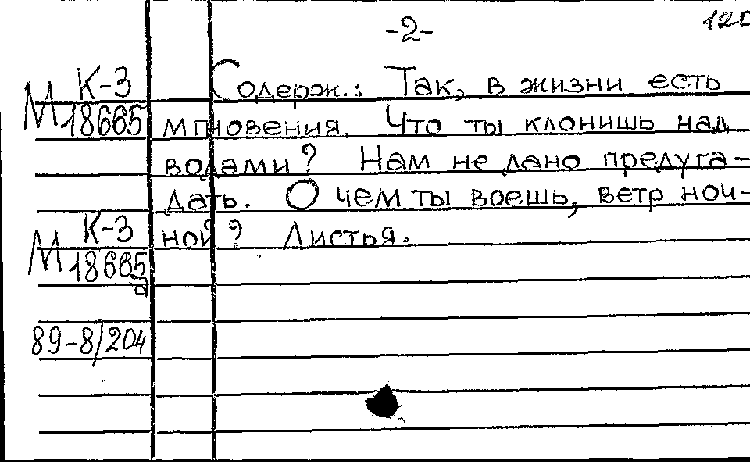 -2-
К-3
М 18665
Содерж.: Так, в жизни есть
мгновения. Что ты клонишь над
водами? Нам не дано предуга-
дать. О чем ты воешь, ветр ноч-
ной? Листья.
К-3
М 18665
а
89-8/204